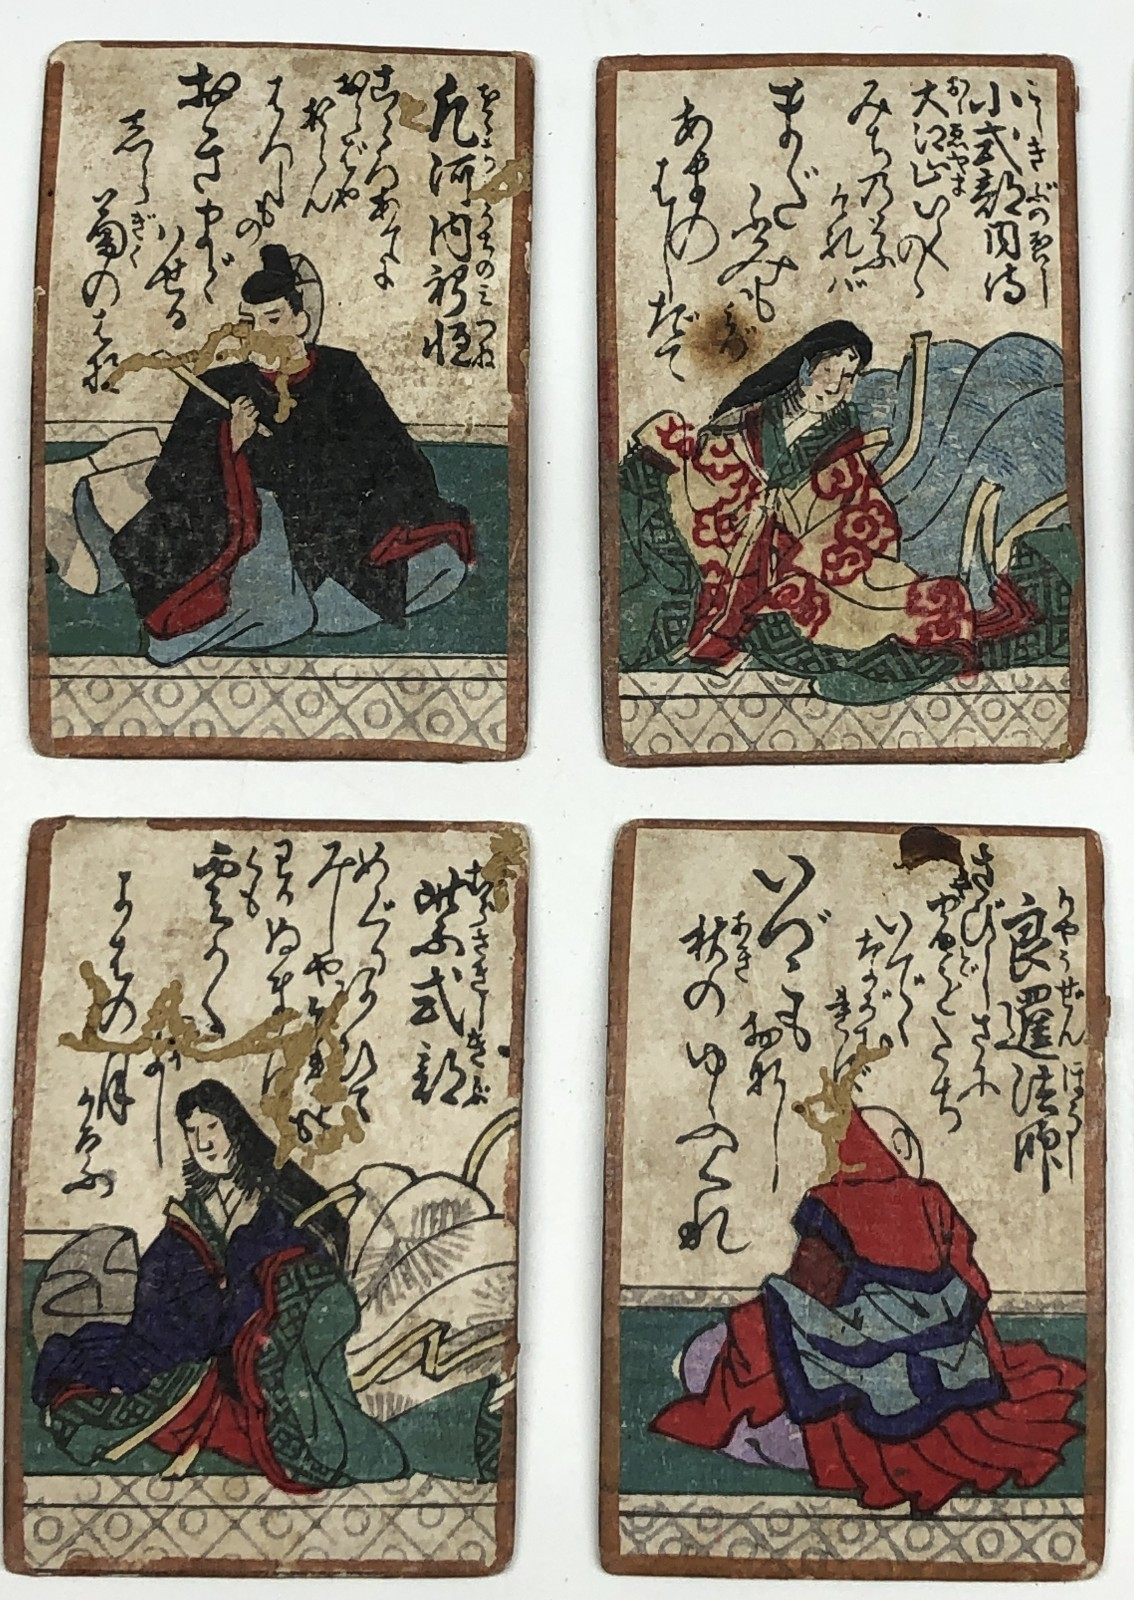 凡河内躬恒
おふしかうちのみつね
こゝろあてに
おらばや
おらん
はつしもの
おきまどはせる
しらぎく
菊のはな
小式部内侍
こしきぶのないし
大江山いくの
おゝえやま
みちの
ければ
まだふみもみず
あまの
はしだて
紫式部
むらさきしきぶ
めぐりあひて
みしやそれ
わかぬまに
雲がくれ
くも
よはの月かげ
良暹法師
りやうぜんほうし
さびしさに
やどをたち
いでゝ
ながむれば
いづくもおなし
秋のゆふぐれ
あき